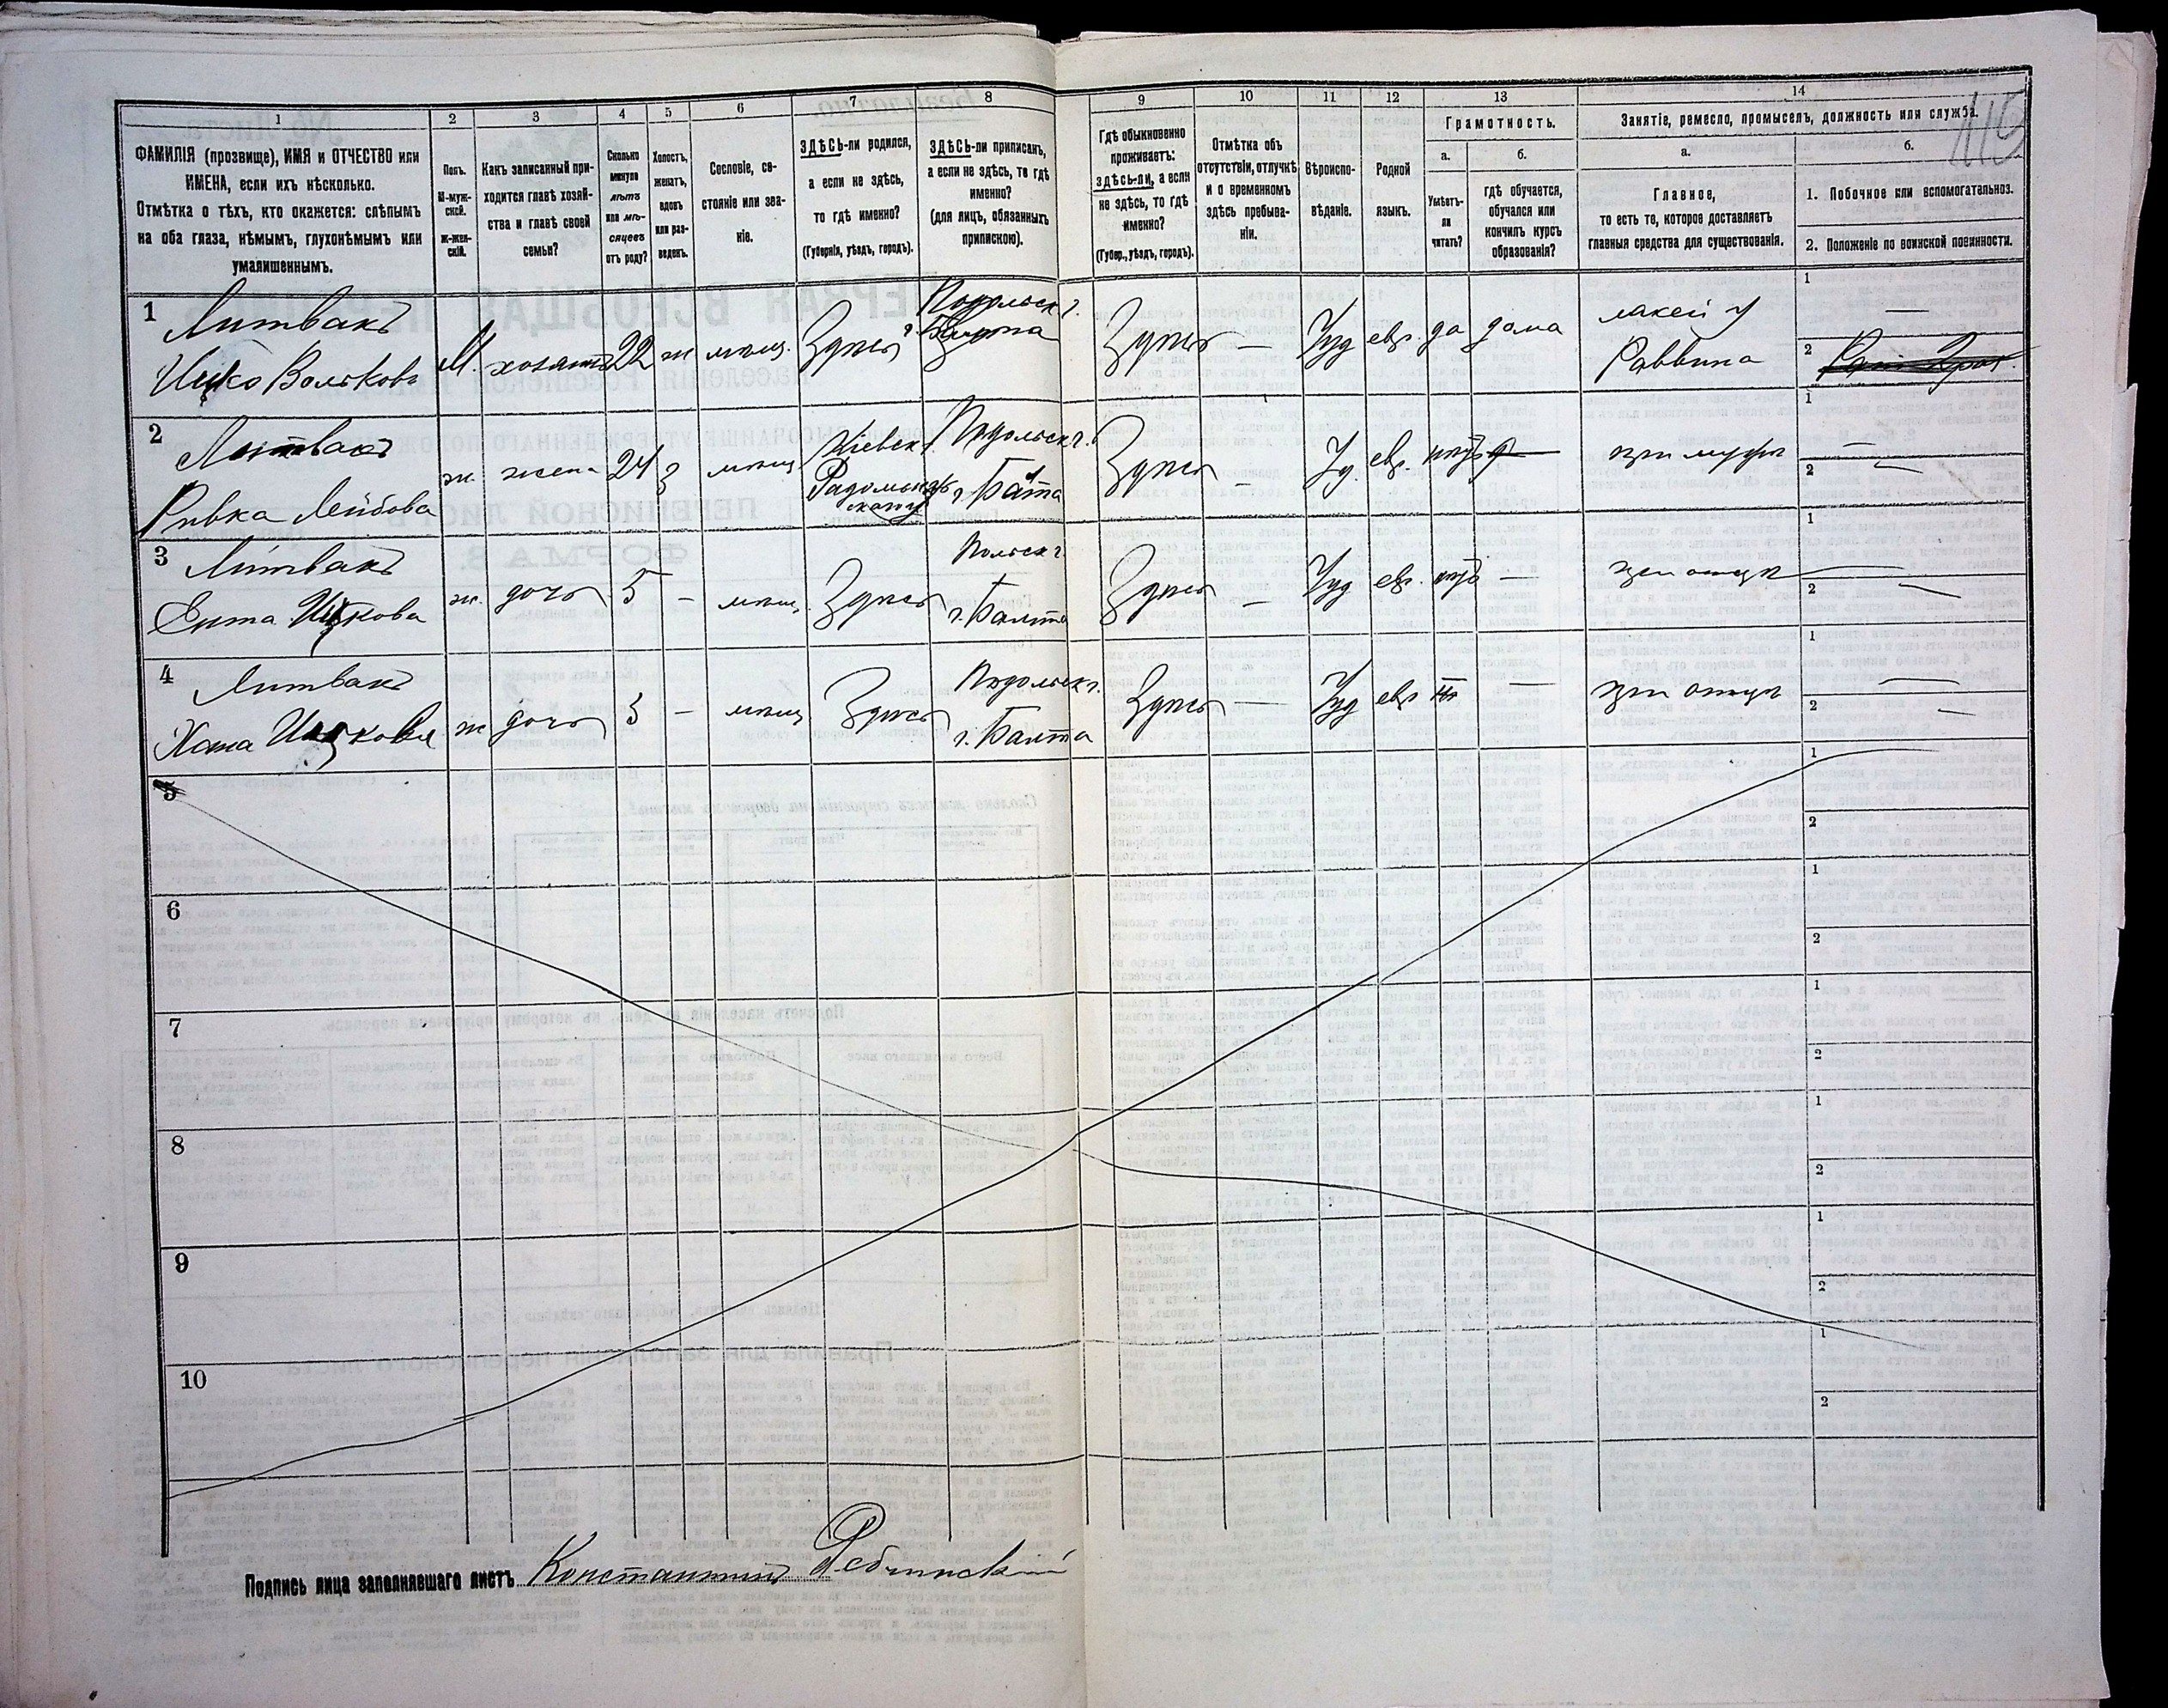 1 2 3 4 5 6 7 8 9 10 11 12 13 14
ФАМИЛІЯ (прозвище), ИМЯ и ОТЧЕСТВО или
ИМЕНА, если ихъ нѣсколько.
Отмѣтка о тѣхъ, кто окажется: слѣпымъ
на оба глаза, нѣмымъ, глухонѣмымъ или
умалишеннымъ.
Полъ.
М-муж-
ской.
Ж-жен-
скій.
Какъ записанный при-
ходится главѣ хозяй-
ства и главѣ своей
семьи?
Сколько
минуло
лѣтъ
или мѣ-
сяцевъ
отъ роду?
Холостъ,
женатъ,
вдовъ
или раз-
веденъ.
Сословіе, со-
стояніе или зва-
ніе.
ЗДѢСЬ-ли родился,
а если не здѣсь,
то гдѣ именно?
(Губернія, уѣздъ, городъ).
ЗДѢСЬ-ли приписанъ,
а если не здѣсь, то гдѣ
именно?
(для лицъ, обязанныхъ
припискою).
Гдѣ обыкновенно
проживаетъ:
здѣсь-ли, а если
не здѣсь, то гдѣ
именно?
(Губер., уѣздъ, городъ).
Отмѣтка объ
отсутствіи, отлучкѣ
и о временномъ
здѣсь пребыва-
ніи.
Вѣроиспо-
вѣданіе.
Родной
языкъ.
Грамотность.
а.
Умѣетъ-
ли
читать?
б.
гдѣ обучается,
обучался или
кончилъ курсъ
образованія?
Занятіе, ремесло, промыселъ, должность или служба.
а.
Главное,
то есть то, которое доставляетъ
главныя средства для существованія.
б.
1. Побочное или вспомогательноз.
2. Положеніе по воинской повинности.
1 Литвакъ
Ицко Вольковъ
М. хозяинъ 22 ж мѣщ. Здѣсь
Подольск г.
г. Балта
Здѣсь — Іуд евр. да дома
лакей у
Раввина
1 —
2
2 Литвакъ
Ривка Лейбова
ж. жена 24 з мѣщ
Кіевск г.
Подольск г.
г. Балта
Здѣсь — Іуд. евр. нѣтъ —
при мужѣ
1 —
2 —
3 Литвакъ
Ента Ицкова
ж. дочь 5 — мѣщ. Здѣсь
г. Балта
Здѣсь — Іуд евр. нѣтъ —
при отцѣ
1 —
2 —
4 Литвакъ
Хана Ицкова
ж дочь 3 — мѣщ Здѣсь
Подольск г.
г. Балта
Здѣсь — Іуд евр —
при отцѣ
1 —
2 —
5
1
2
6
1
2
7
1
2
8
1
2
9
1
2
10
1
2
Подпись лица заполнявшаго листъ Константинъ